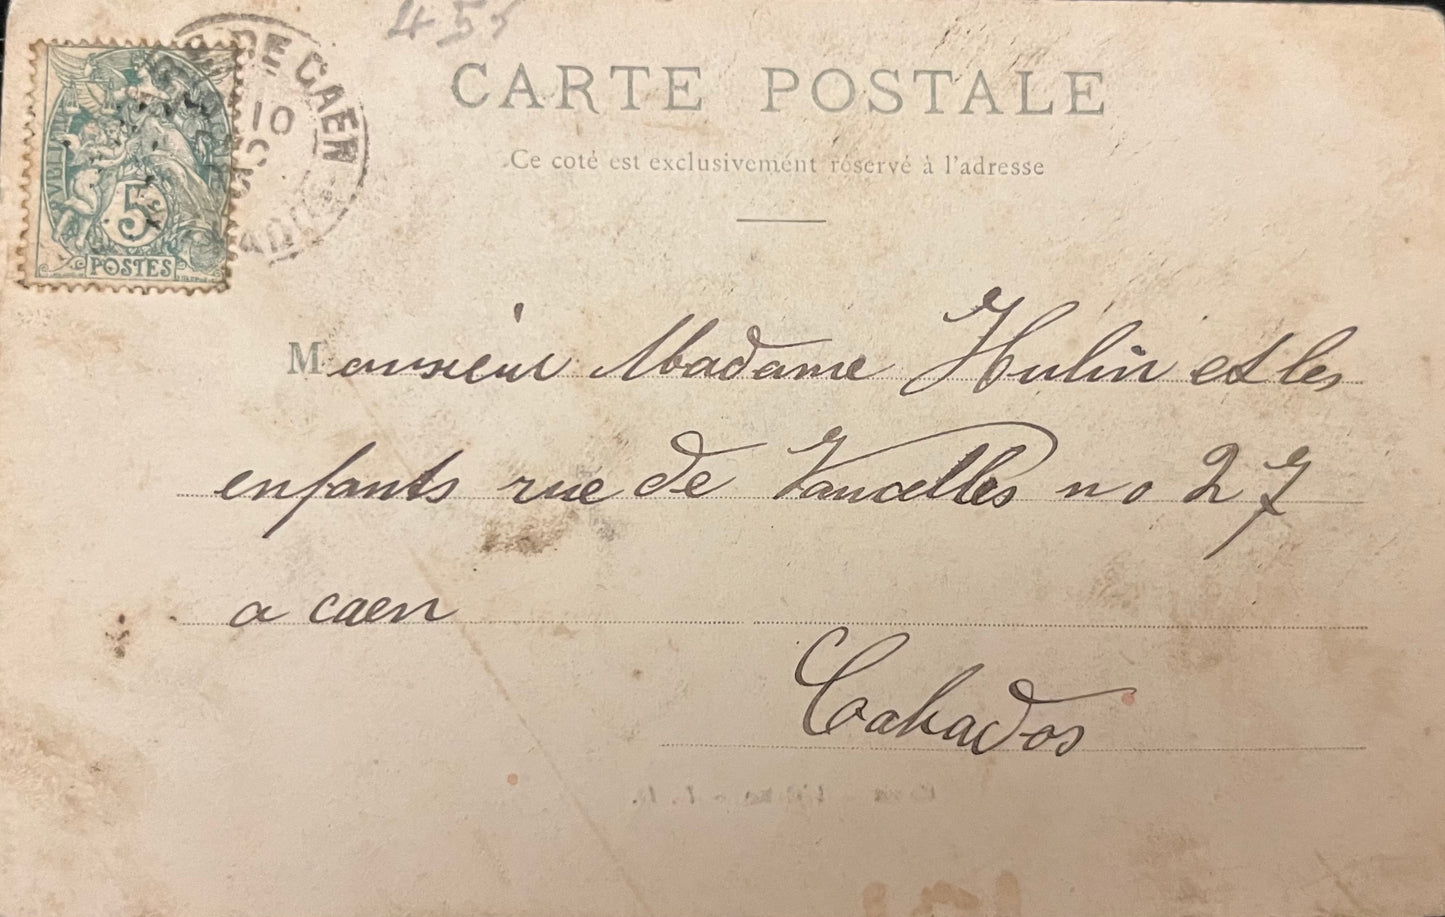 455
DE CAEN
10
5c
POSTES
CARTE POSTALE
Ce coté est exclusivement réservé à l'adresse
Monsieur Madame Hulin et les
enfants rue de Vaucelles no 27
a caen
Calvados